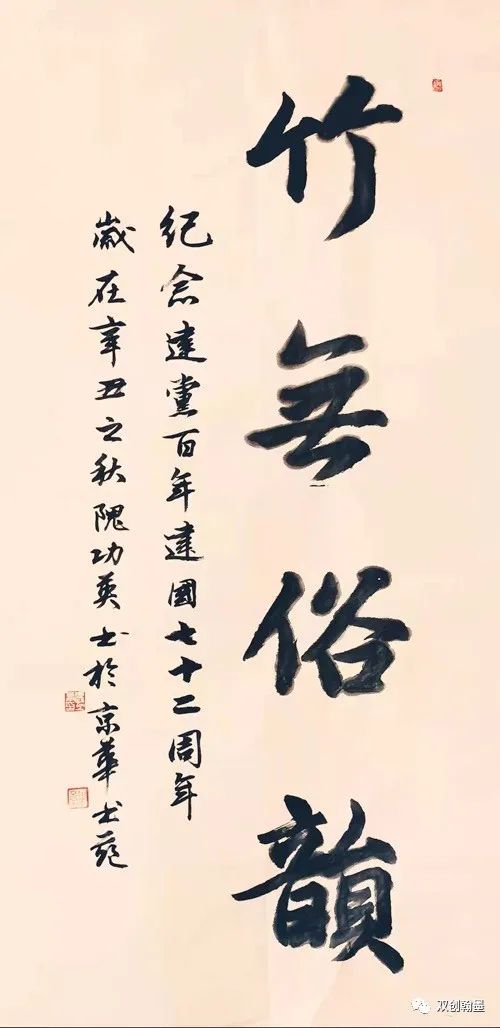 竹無俗韻
纪念建党百年建國七十二周年
歲在辛丑之秋隗功英书於京華书苑
双创翰墨